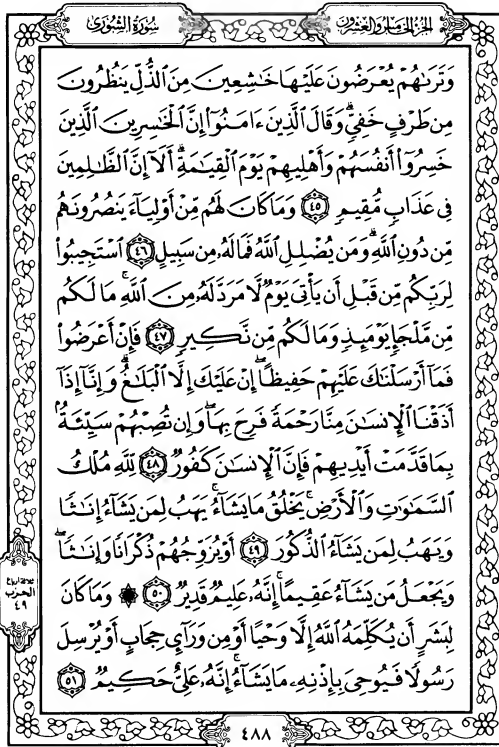 سُورَةُ الشُّورَىٰ
الجُزءُ الخَامِسُ وَالعِشْرُونَ
وَتَرَىٰهُمْ يُعْرَضُونَ عَلَيْهَا خَـٰشِعِينَ مِنَ ٱلذُّلِّ يَنظُرُونَ
مِن طَرْفٍ خَفِيٍّ ۗ وَقَالَ ٱلَّذِينَ ءَامَنُوٓا۟ إِنَّ ٱلْخَـٰسِرِينَ ٱلَّذِينَ
خَسِرُوٓا۟ أَنفُسَهُمْ وَأَهْلِيهِمْ يَوْمَ ٱلْقِيَـٰمَةِ ۗ أَلَآ إِنَّ ٱلظَّـٰلِمِينَ
فِى عَذَابٍ مُّقِيمٍ ٤٥ وَمَا كَانَ لَهُم مِّنْ أَوْلِيَآءَ يَنصُرُونَهُم
مِّن دُونِ ٱللَّهِ ۗ وَمَن يُضْلِلِ ٱللَّهُ فَمَا لَهُۥ مِن سَبِيلٍ ٤٦ ٱسْتَجِيبُوا۟
لِرَبِّكُم مِّن قَبْلِ أَن يَأْتِىَ يَوْمٌ لَّا مَرَدَّ لَهُۥ مِنَ ٱللَّهِ ۚ مَا لَكُم
مِّن مَّلْجَإٍ يَوْمَئِذٍ وَمَا لَكُم مِّن نَّكِيرٍ ٤٧ فَإِنْ أَعْرَضُوا۟
فَمَآ أَرْسَلْنَـٰكَ عَلَيْهِمْ حَفِيظًا ۖ إِنْ عَلَيْكَ إِلَّا ٱلْبَلَـٰغُ ۗ وَإِنَّآ إِذَآ
أَذَقْنَا ٱلْإِنسَـٰنَ مِنَّا رَحْمَةً فَرِحَ بِهَا ۖ وَإِن تُصِبْهُمْ سَيِّئَةٌۢ
بِمَا قَدَّمَتْ أَيْدِيهِمْ فَإِنَّ ٱلْإِنسَـٰنَ كَفُورٌ ٤٨ لِّلَّهِ مُلْكُ
ٱلسَّمَـٰوَٰتِ وَٱلْأَرْضِ ۚ يَخْلُقُ مَا يَشَآءُ ۚ يَهَبُ لِمَن يَشَآءُ إِنَـٰثًا
وَيَهَبُ لِمَن يَشَآءُ ٱلذُّكُورَ ٤٩ أَوْ يُزَوِّجُهُمْ ذُكْرَانًا وَإِنَـٰثًا ۖ
وَيَجْعَلُ مَن يَشَآءُ عَقِيمًا ۚ إِنَّهُۥ عَلِيمٌ قَدِيرٌ ٥٠ ۞ وَمَا كَانَ
لِبَشَرٍ أَن يُكَلِّمَهُ ٱللَّهُ إِلَّا وَحْيًا أَوْ مِن وَرَآئِ حِجَابٍ أَوْ يُرْسِلَ
رَسُولًا فَيُوحِىَ بِإِذْنِهِۦ مَا يَشَآءُ ۚ إِنَّهُۥ عَلِىٌّ حَكِيمٌ ٥١
ثلاثة أرباع
الحزب
٤٩
٤٨٨